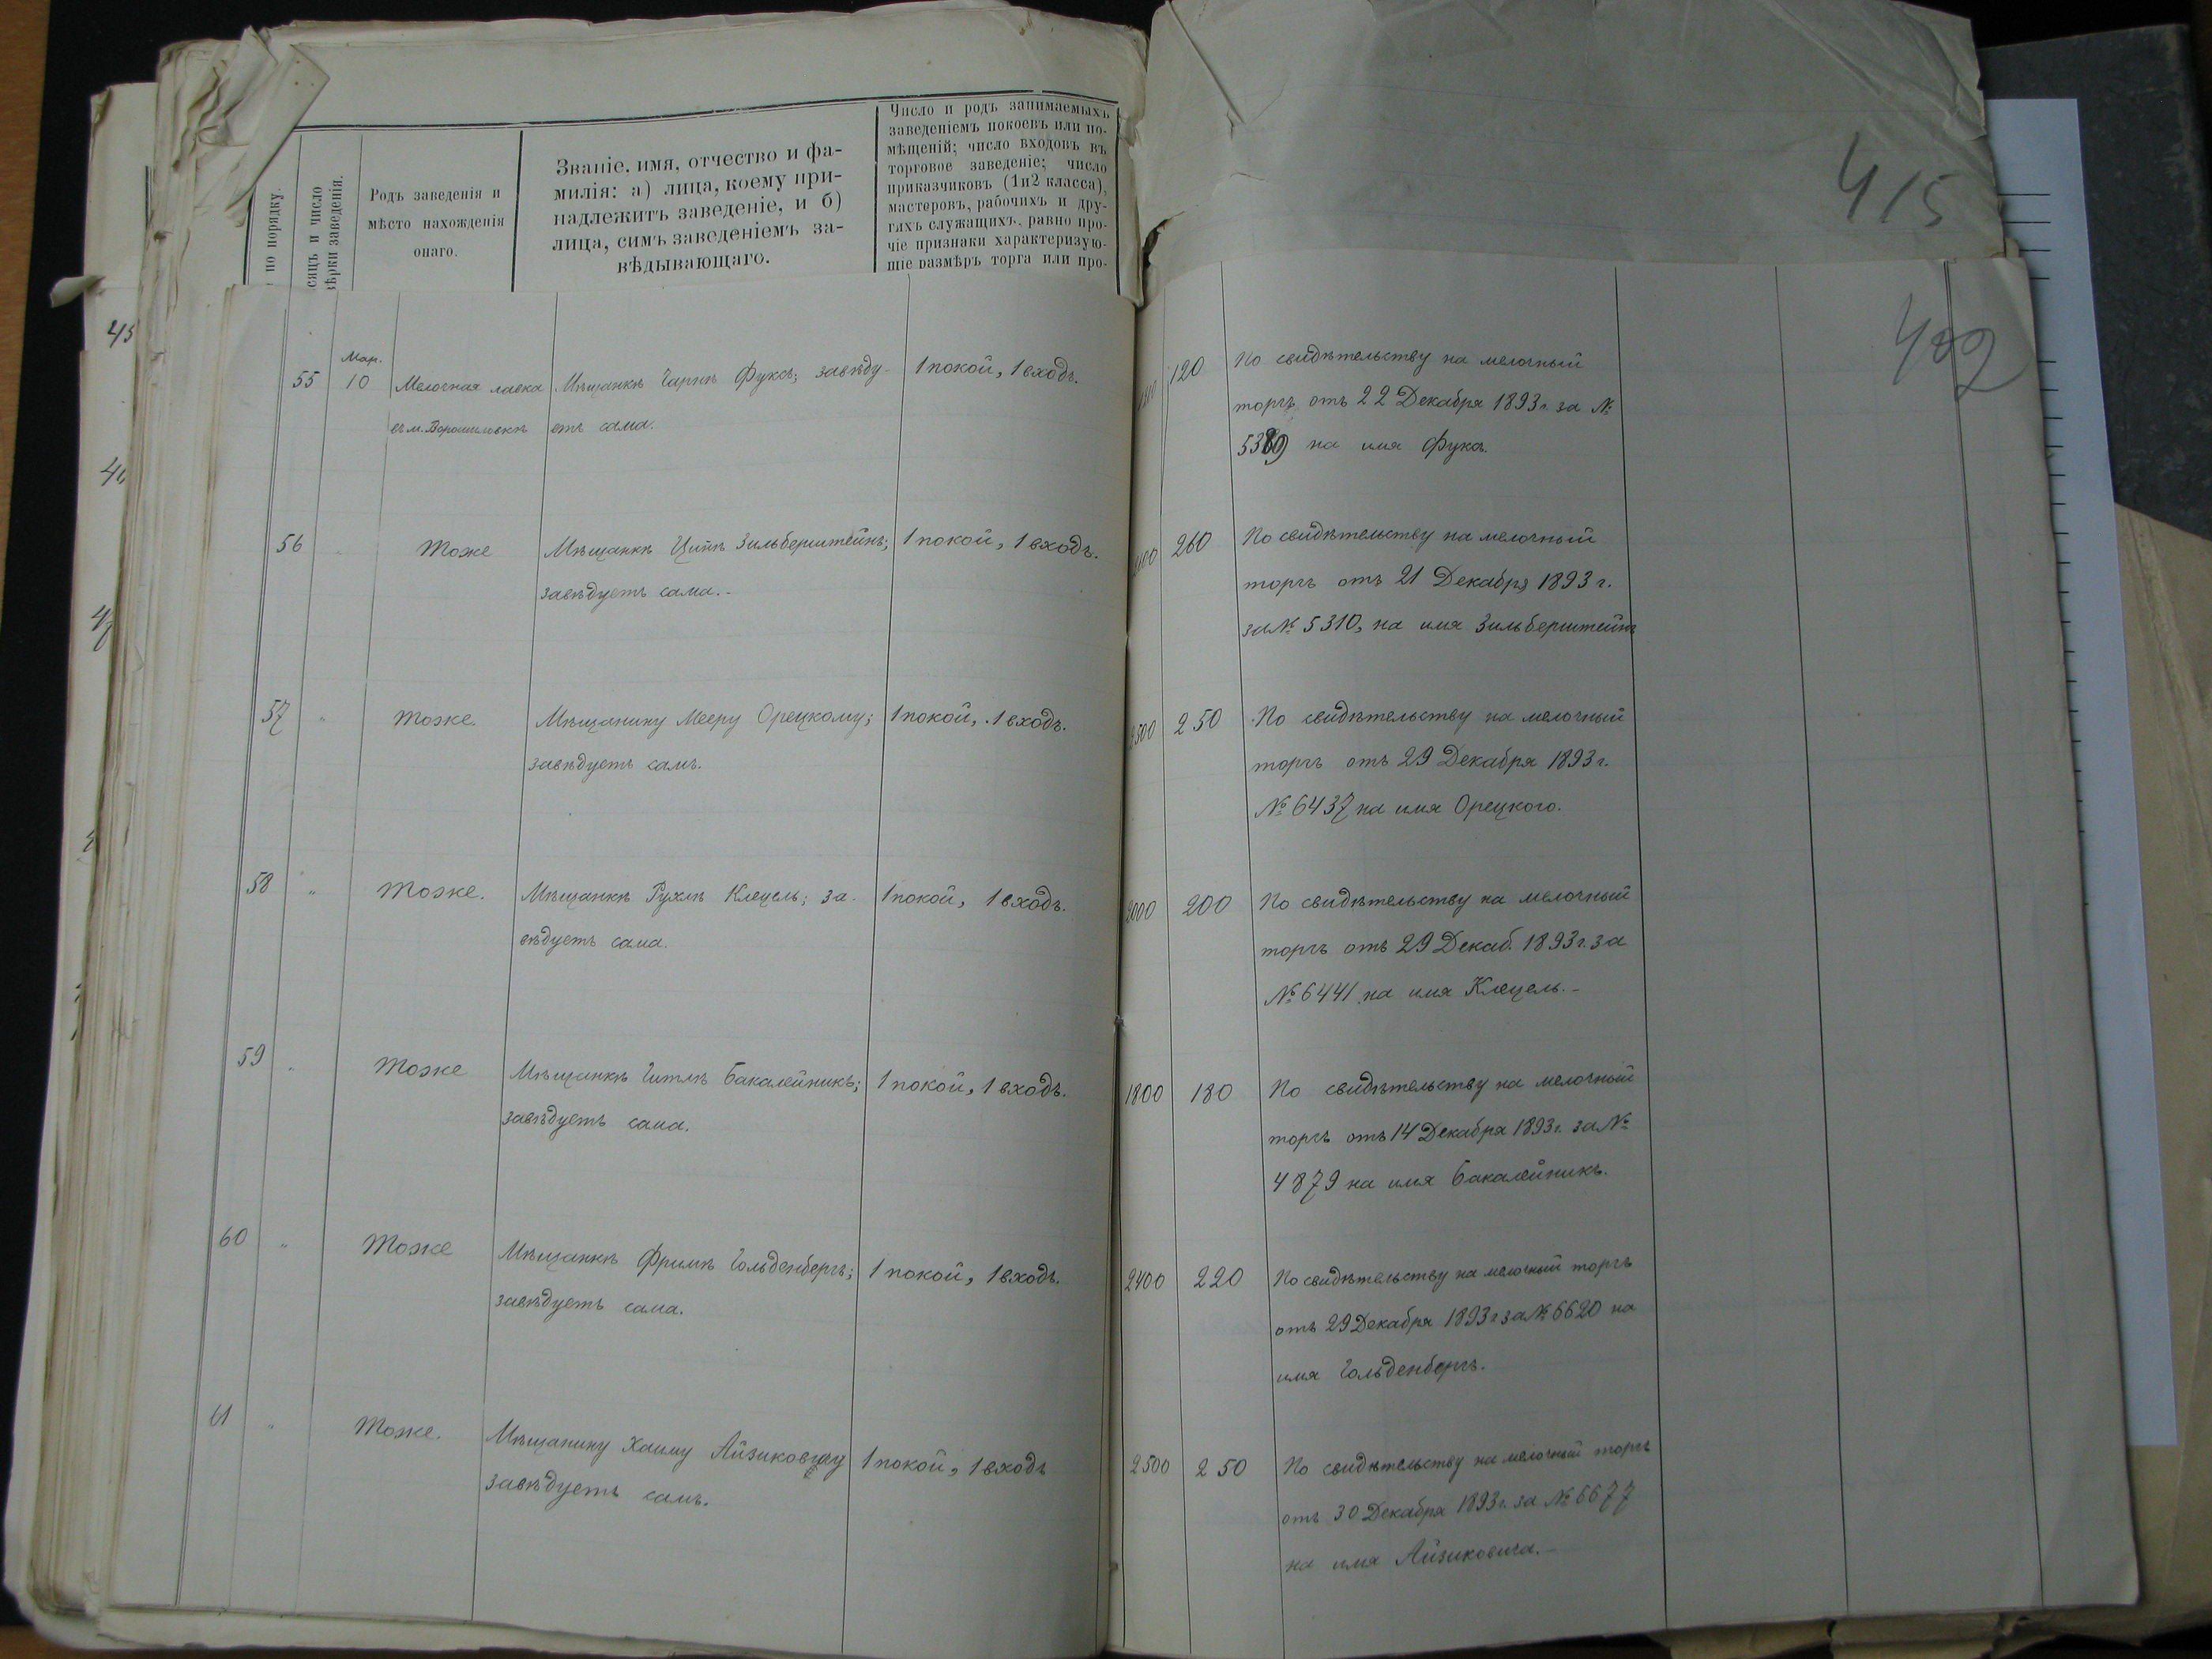 по порядку.
сяцъ и число
ѣрки заведенія.
Родъ заведенія и
мѣсто нахожденія
онаго.
Званіе, имя, отчество и фа-
милія: а) лица, коему при-
надлежитъ заведеніе, и б)
лица, симъ заведеніемъ за-
вѣдывающаго.
Число и родъ занимаемыхъ
заведеніемъ покоевъ или по-
мѣщеній; число входовъ въ
торговое заведеніе; число
приказчиковъ (1и2 класса),
мастеровъ, рабочихъ и дру-
гихъ служащихъ, равно про-
чіе признаки характеризую-
щіе размѣръ торга или про-
415
402
45
55
Мар.
10
Мелочная лавка
въ м. Ворошиловкѣ
Мѣщанкѣ Чарнѣ Фуксъ; завѣду-
етъ сама.
1 покой, 1 входъ.
120
По свидѣтельству на мелочный
торгъ отъ 22 Декабря 1893 г. за №
на имя Фукс.
56
"
Тоже
Мѣщанкѣ Ципѣ Зильберштейнъ;
завѣдуетъ сама.-
1 покой, 1 входъ.
260
По свидѣтельству на мелочный
торгъ отъ 21 Декабря 1893 г.
за № 5310, на имя Зильберштейнъ
57
"
Тоже.
Мѣщанину Мееру Орецкому;
завѣдуетъ самъ.
1 покой, 1 входъ.
2500
250
По свидѣтельству на мелочный
торгъ отъ 29 Декабря 1893 г.
№ 6437 на имя Орецкого.
58
"
Тоже.
Мѣщанкѣ Рухлѣ Клецель; за-
вѣдуетъ сама.
1 покой, 1 входъ.
2000
200
По свидѣтельству на мелочный
торгъ отъ 29 Декаб. 1893 г. за
№ 6441 на имя Клецель.-
59
"
Тоже
Мѣщанкѣ Гитлѣ Бакалейникъ;
завѣдуетъ сама.
1 покой, 1 входъ.
1800
180
По свидѣтельству на мелочный
торгъ отъ 14 Декабря 1893 г. за №
4879 на имя Бакалейникъ.
60
"
Тоже
Мѣщанкѣ Фримѣ Гольденбергъ;
завѣдуетъ сама.
1 покой, 1 входъ.
2400
220
По свидѣтельству на мелочный торгъ
отъ 29 Декабря 1893 г. за № 6620 на
имя Гольденбергъ.
61
"
Тоже.
Мѣщанину Хаиму Айзиковичу
завѣдуетъ самъ.
1 покой, 1 входъ
2500
250
По свидѣтельству на мелочный торгъ
отъ 30 Декабря 1893 г. за № 6677
на имя Айзиковича.-